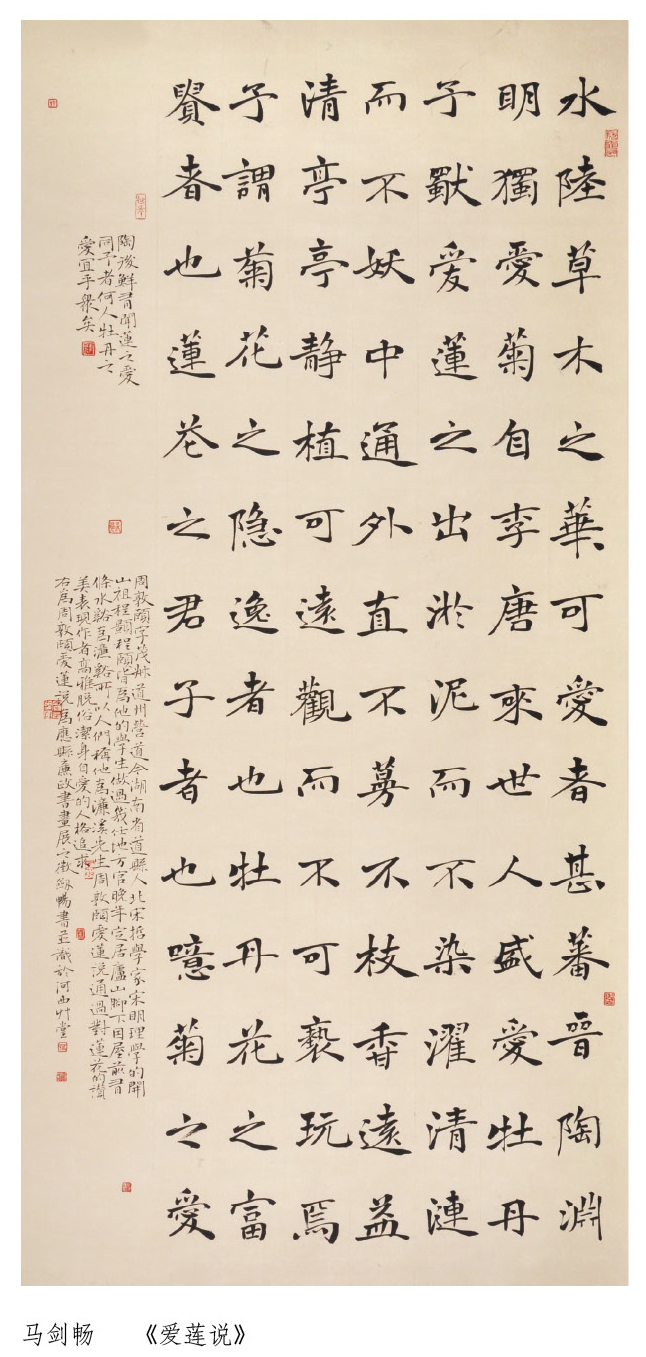 水陸草木之華可愛者甚蕃晉陶淵
明獨愛菊自李唐來世人盛愛牡丹
予爱蓮之出淤泥而不染濯清漣
而不妖中通外直不蔓不枝香遠益
清亭亭静植可遠觀而不可褻玩焉
予謂菊花之隐逸者也牡丹花之富
貴者也蓮花之君子者也噫菊之愛
陶後鮮有聞蓮之愛
同予者何人牡丹之
愛宜乎衆矣
周敦頤字茂叔道州營道今湖南省道縣人北宋哲學家宋明理學的開
山祖程顥程頤皆爲他的學生做過幾任地方官晚年定居廬山脚下因屋前有
條水谿爲濂谿所以人們稱他爲濂溪先生周敦頤愛蓮說通過對蓮花的讚
美表現作者高雅脱俗潔身自愛的人格追求
右爲周敦頤愛蓮說爲應縣廉政書畫展之徵劍暢書並識於河西艸堂
马剑畅 《爱莲说》